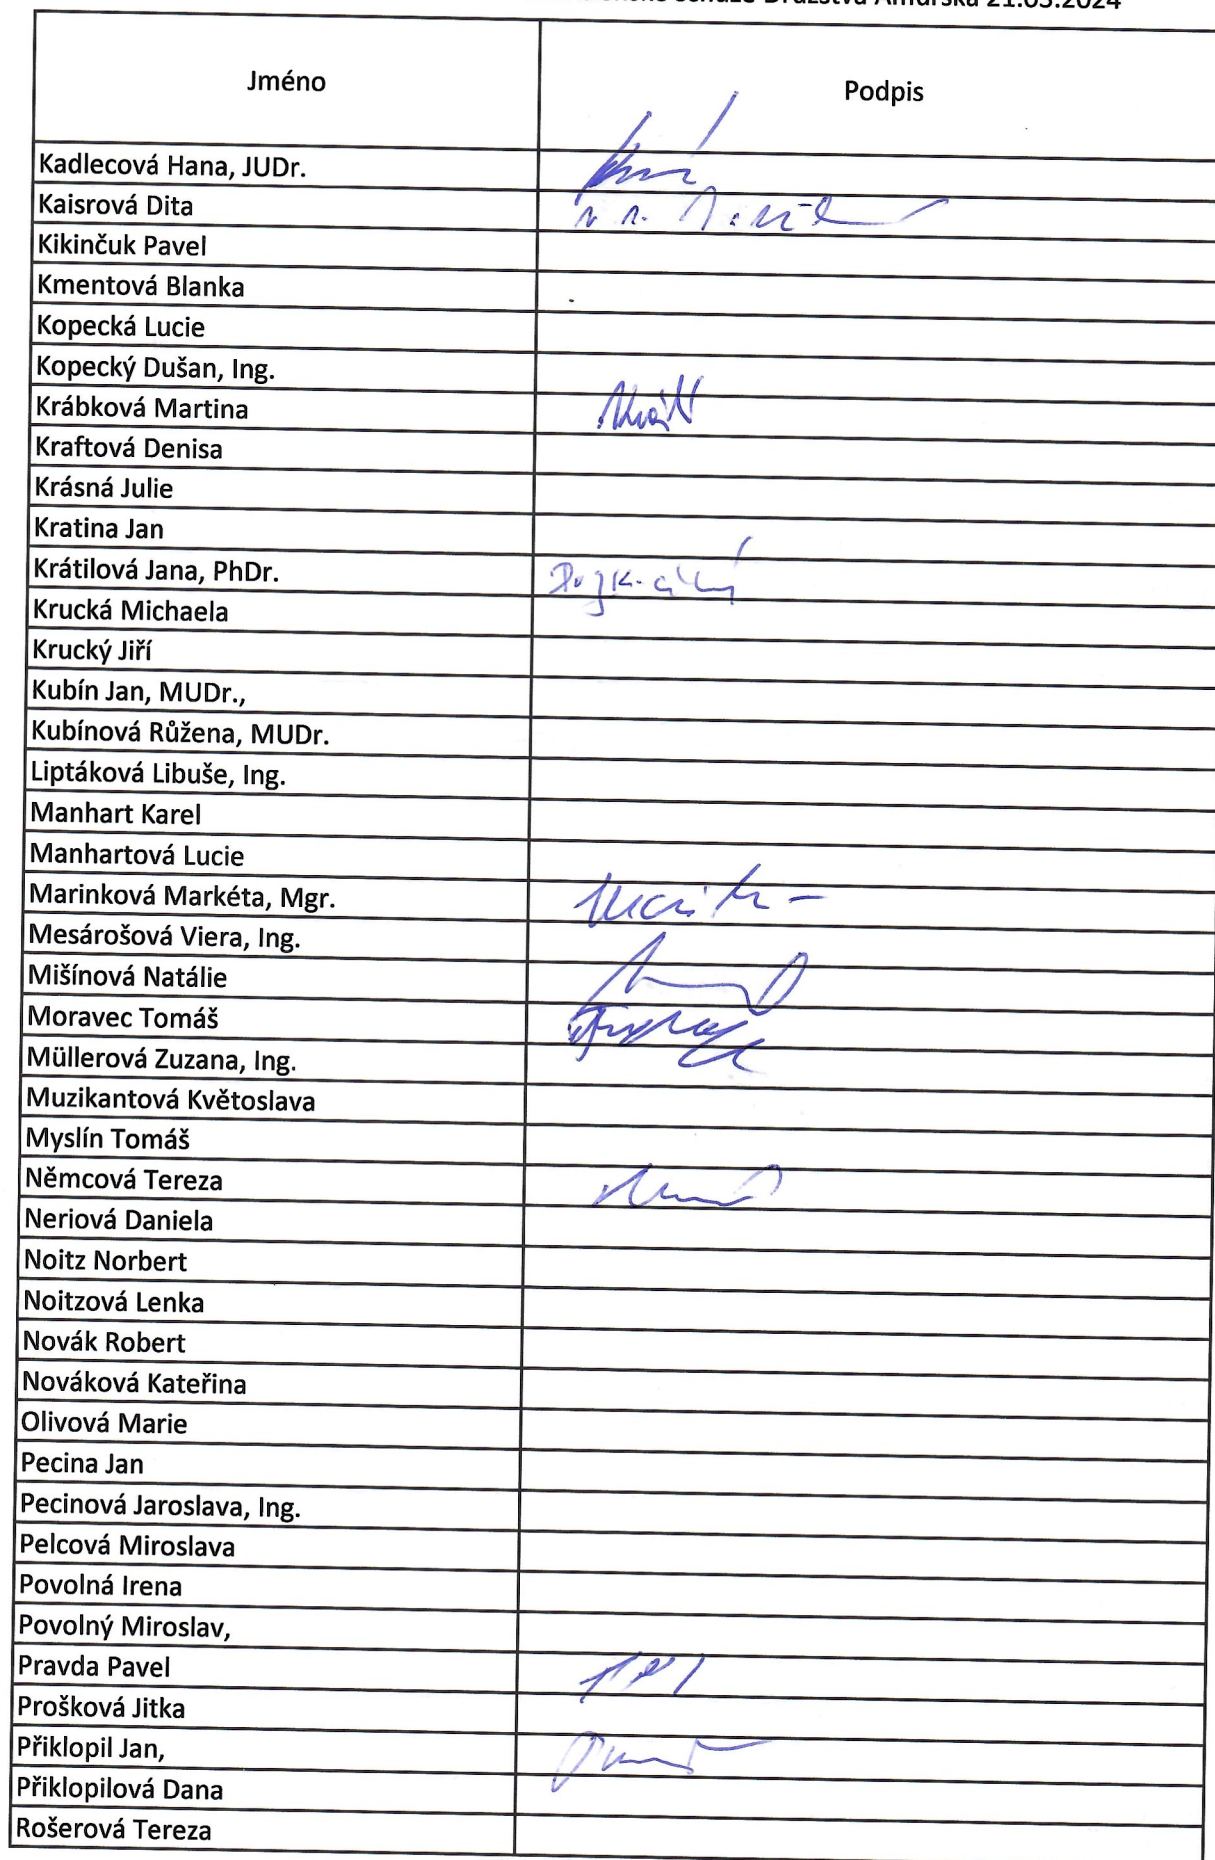 schůze Družstva Amurská 21.05.2024
Jméno Podpis
Kadlecová Hana, JUDr.
Kaisrová Dita
Kikinčuk Pavel
Kmentová Blanka
Kopecká Lucie
Kopecký Dušan, Ing.
Krábková Martina
Kraftová Denisa
Krásná Julie
Kratina Jan
Krátilová Jana, PhDr.
Krucká Michaela
Krucký Jiří
Kubín Jan, MUDr.,
Kubínová Růžena, MUDr.
Liptáková Libuše, Ing.
Manhart Karel
Manhartová Lucie
Marinková Markéta, Mgr.
Mesárošová Viera, Ing.
Mišínová Natálie
Moravec Tomáš
Müllerová Zuzana, Ing.
Muzikantová Květoslava
Myslín Tomáš
Němcová Tereza
Neriová Daniela
Noitz Norbert
Noitzová Lenka
Novák Robert
Nováková Kateřina
Olivová Marie
Pecina Jan
Pecinová Jaroslava, Ing.
Pelcová Miroslava
Povolná Irena
Povolný Miroslav,
Pravda Pavel
Prošková Jitka
Přiklopil Jan,
Přiklopilová Dana
Rošerová Tereza